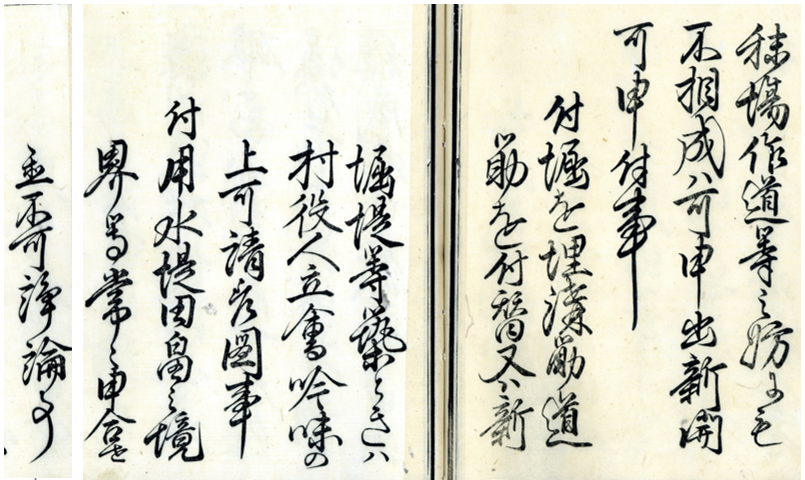 秣場作道等之妨にも
不相成ハ可申出新開
可申付事
付堀を埋溝筋道
筋を付替又ハ新
堀堤等築ときハ
村役人立會吟味の
上可請差圖事
付用水堤田畠之境
界等常々申合せ
並不可諍論事